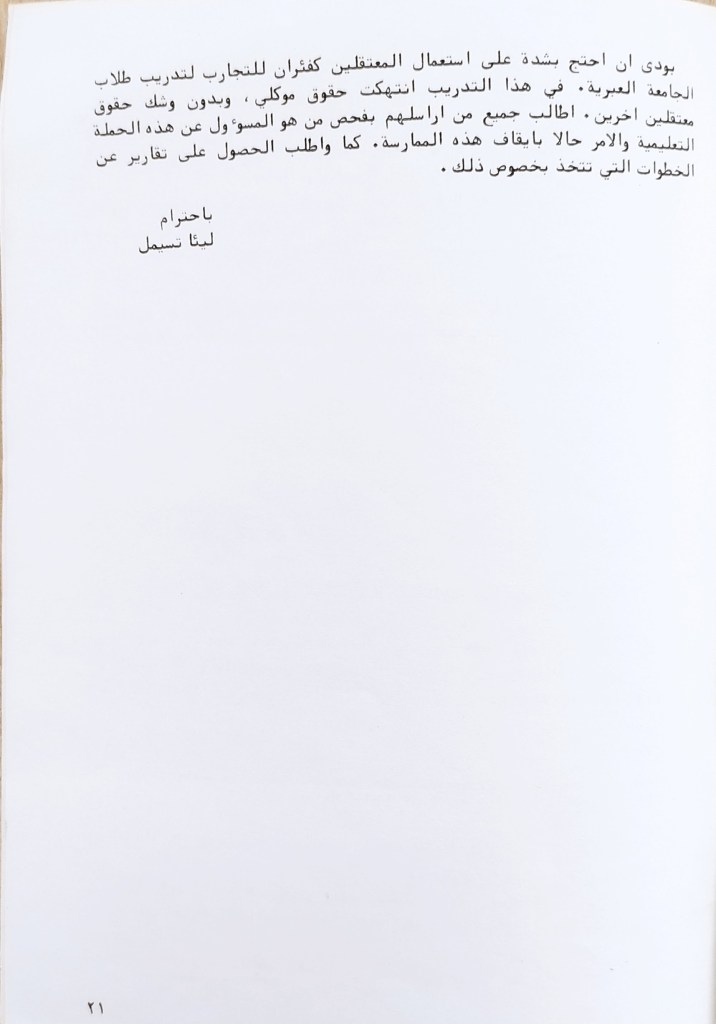 بودى ان احتج بشدة على استعمال المعتقلين كفئران للتجارب لتدريب طلاب
الجامعة العبرية. في هذا التدريب انتهكت حقوق موكلي، وبدون وشك حقوق
معتقلين اخرين. اطالب جميع من اراسلهم بفحص من هو المسوٴول عن هذه الحملة
التعليمية والامر حالا بايقاف هذه الممارسة. كما واطلب الحصول على تقارير عن
الخطوات التي تتخذ بخصوص ذلك.
باحترام
ليئا تسيمل
٢١